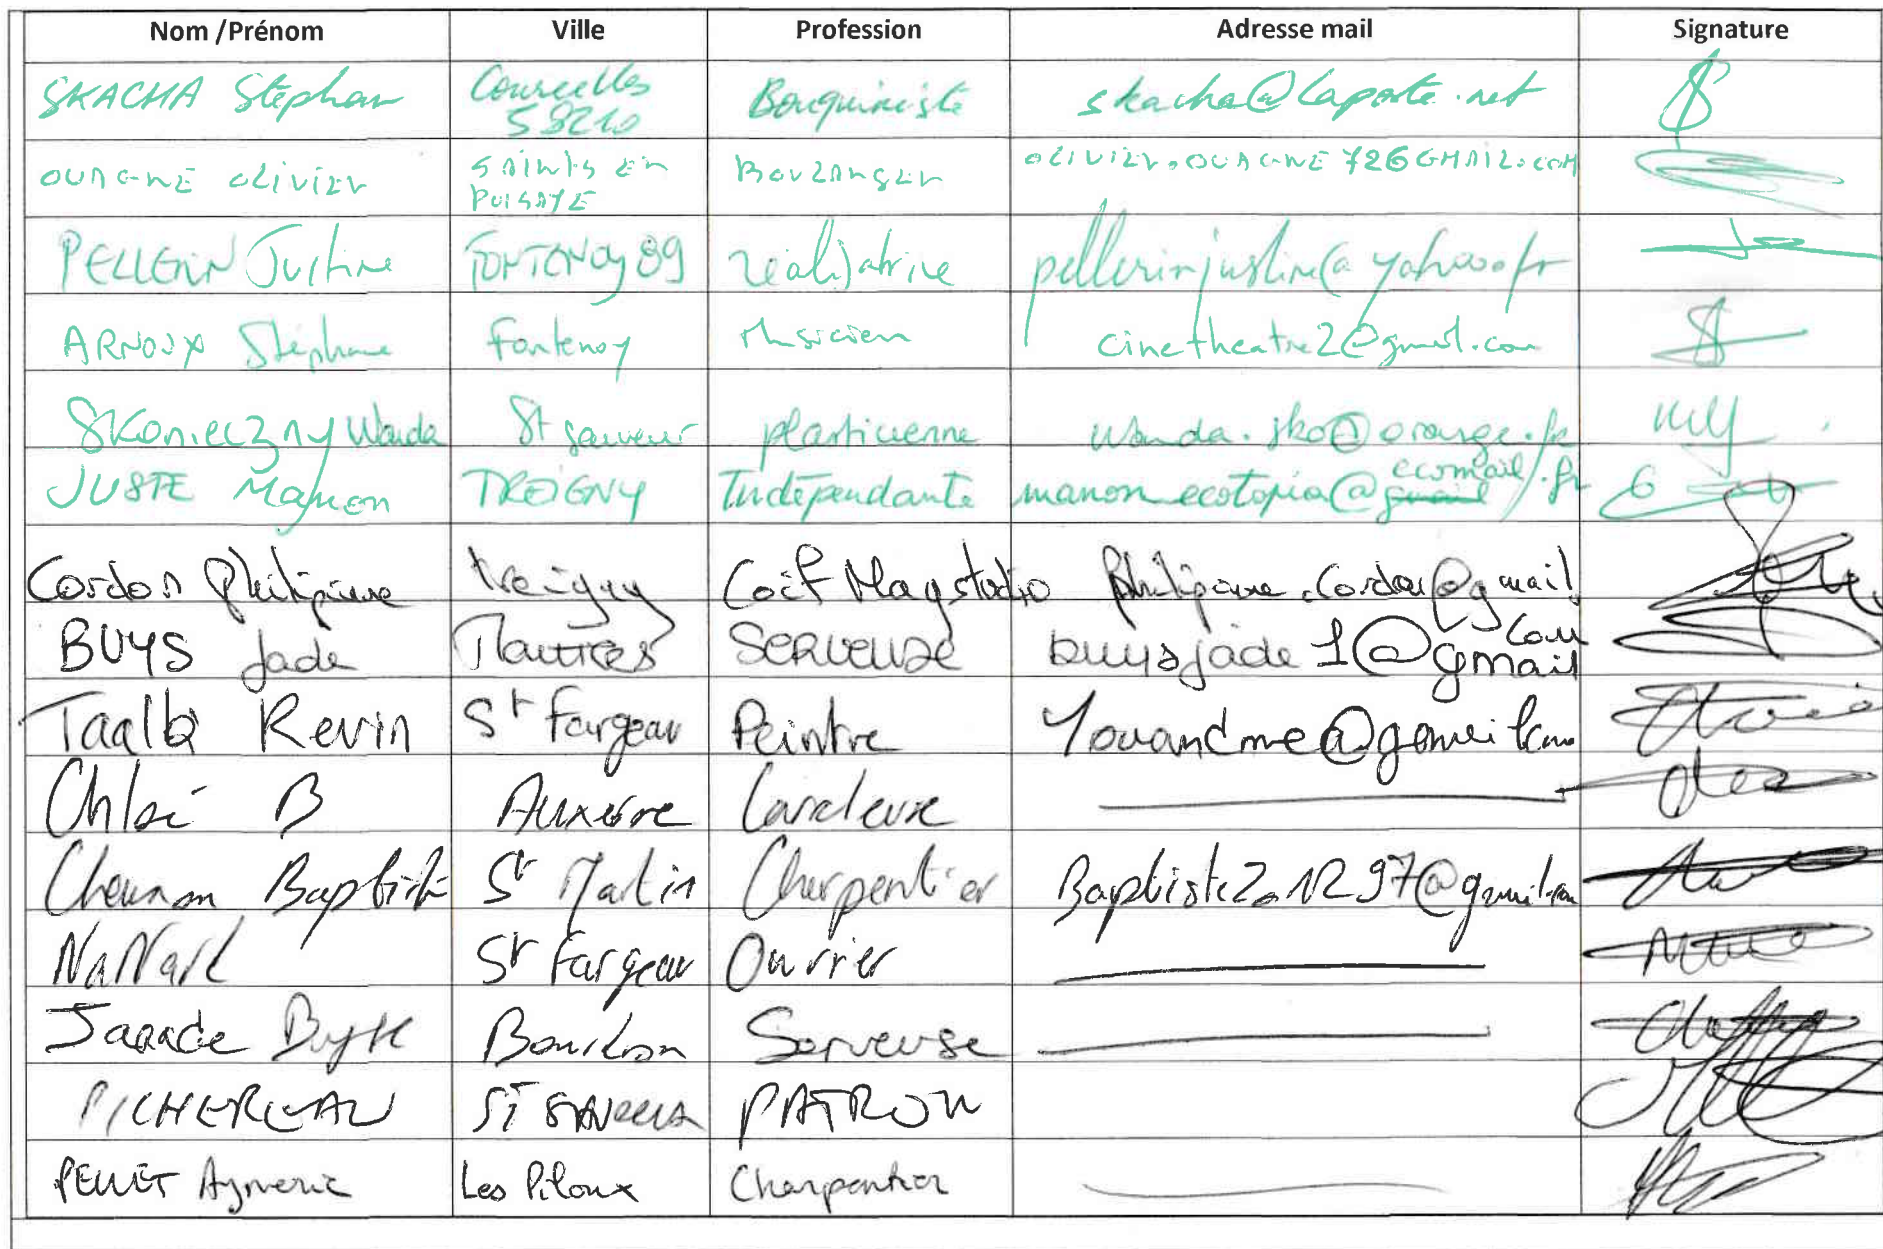 Nom /Prénom Ville Profession Adresse mail Signature
SKACHA Stephan Courcelles 58210 Bouquiniste skacha@laposte.net
OUAGNE OLIVIER SAINTS EN PUISAYE BOULANGER OLIVIER.OUAGNE72@GMAIL.COM
PELLERIN Justine FONTENOY 89 réalisatrice pellerinjustine@yahoo.fr
ARNOUX Stéphane Fontenoy Musicien cinetheatre2@gmail.com
SKONIECZNY Wanda St sauveur plasticienne wanda.sko@orange.fr
JUSTE Manon TREIGNY Indépendante manon.ecotopia@ecomail.fr
Cordon Philipine treigny Coif Mag studio philipine.cordon@gmail.com
BUYS Jade SERVEUSE buysjade1@gmail
Kevin St Fargeau Peintre Youandme@gmail.com
Chloé B Auxerre
Baptiste St Martin Charpentier Baptiste201297@gmail.com
St Fargeau Ouvrier
Serveuse
PICHEREAU ST SAUVEUR PATRON
PELLET Aymeric Les Piloux Charpentier